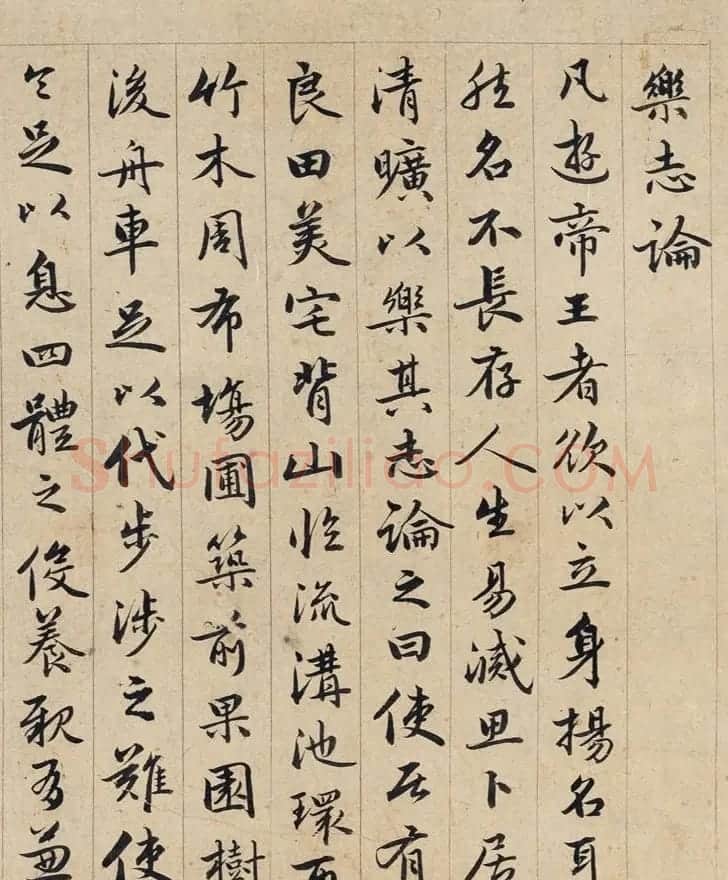 樂志論
凡遊帝王者欲以立身揚名耳
然名不長存人生易滅思卜居
清曠以樂其志論之曰使居有
良田美宅背山臨流溝池環
竹木周布場圃築前果園樹
後舟車足以代步涉之難使
令足以息四體之役養親有兼
Shufaziliao.COM